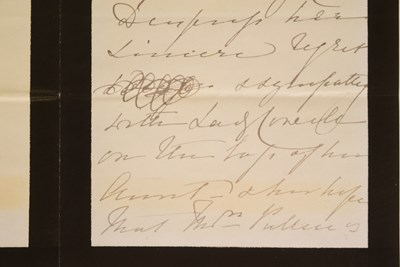 express her
sincere regret
& sympathy
with Lady
on the loss of her
Aunt - & her hope
that Mrs Pullen is